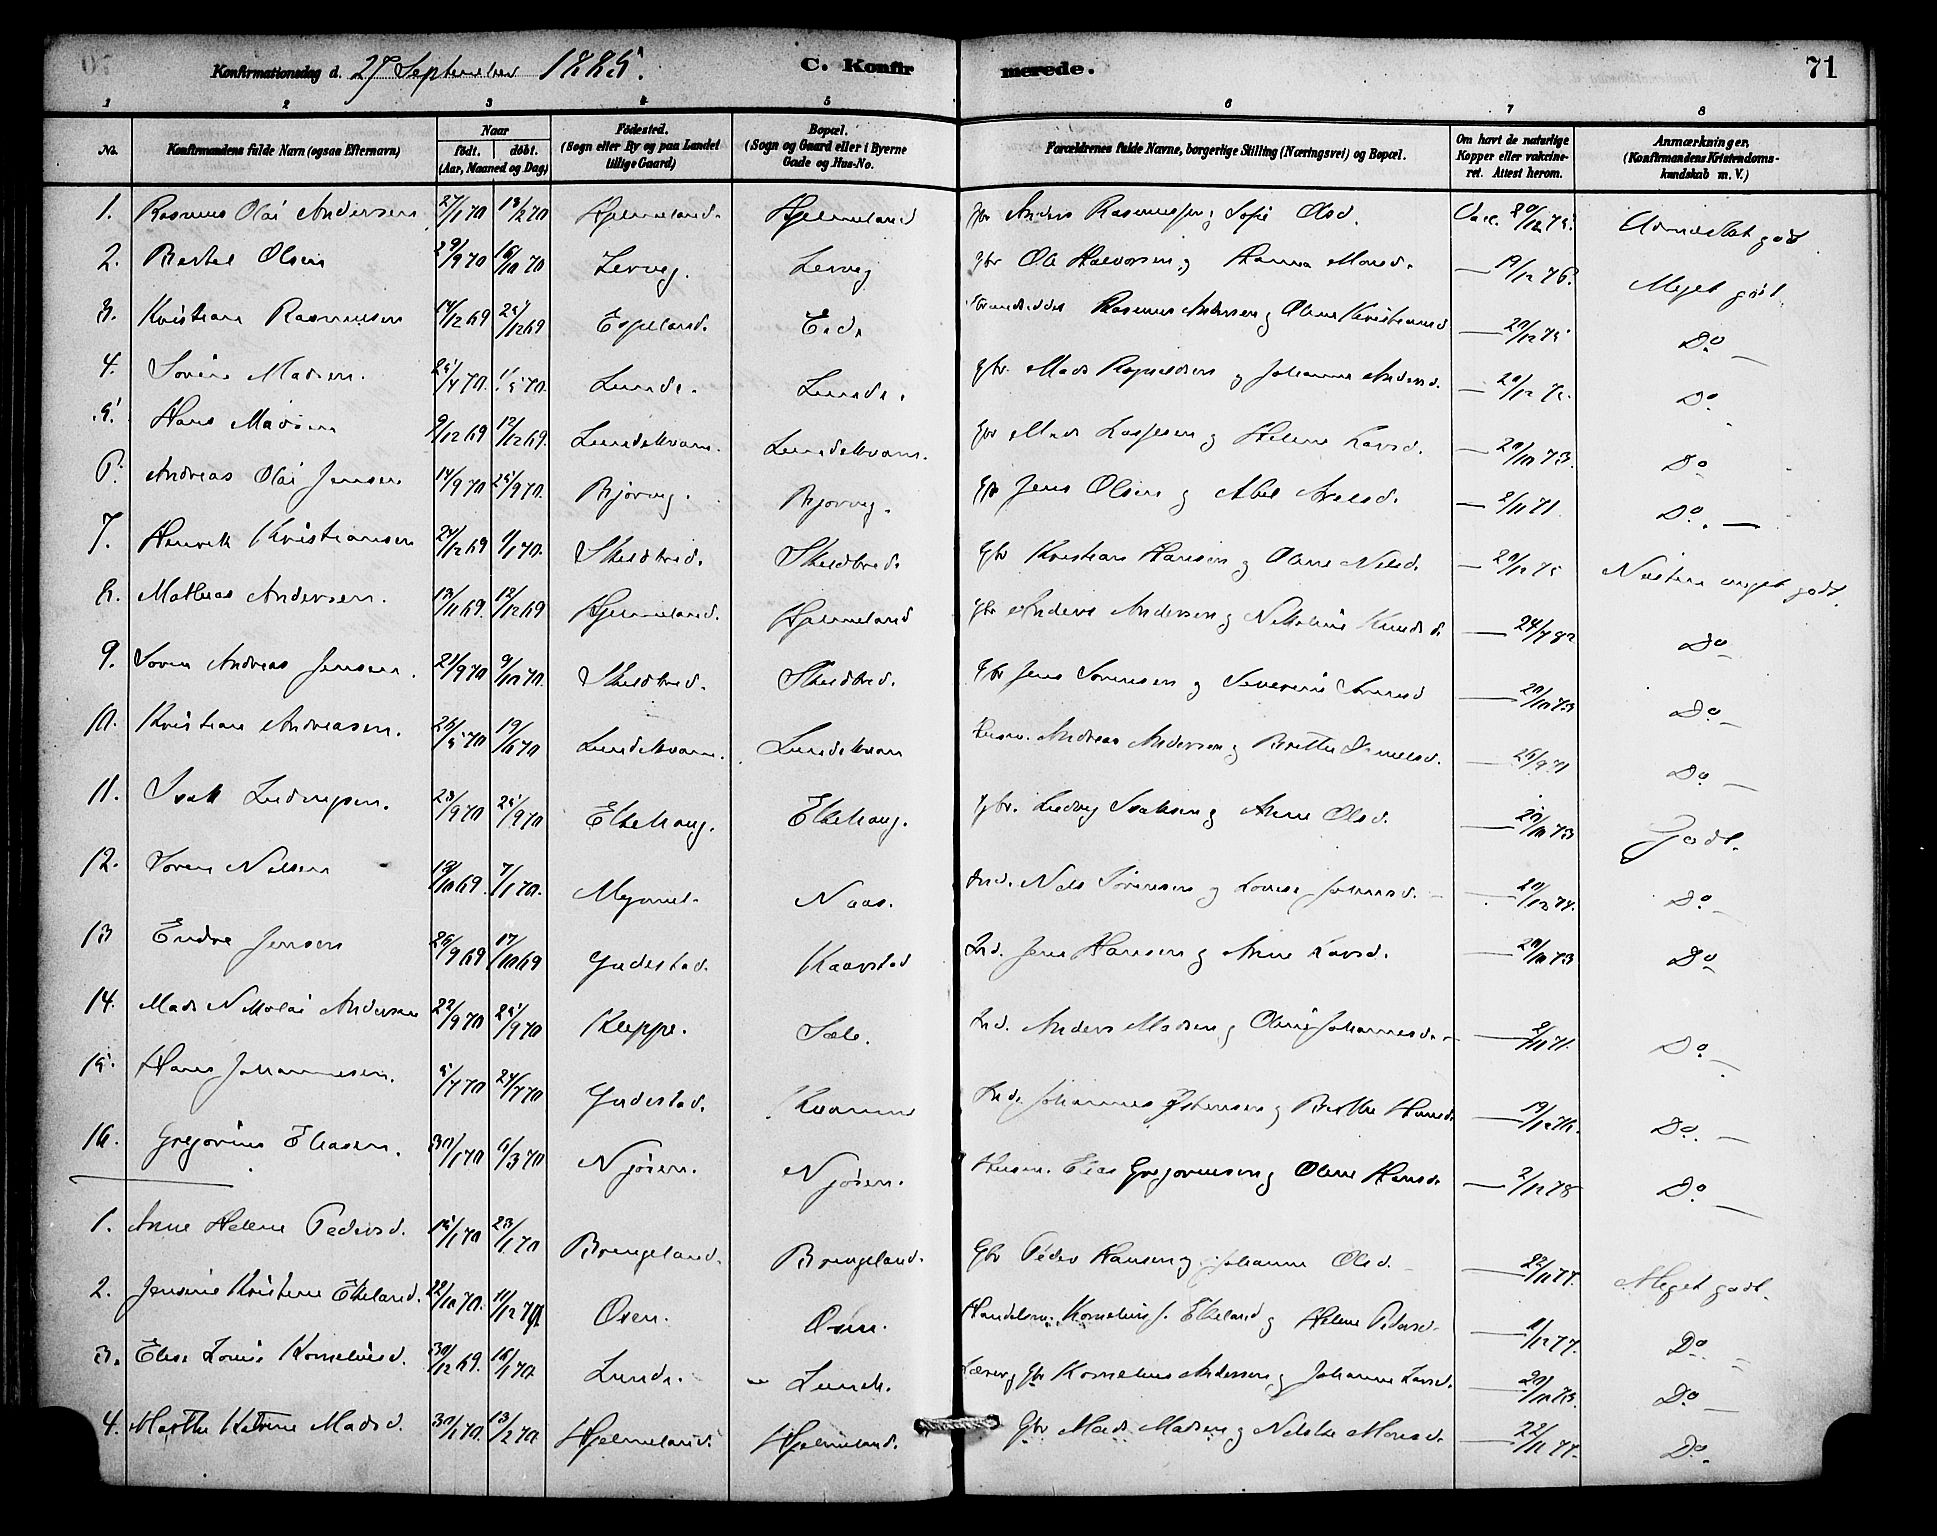 Konfirmationsdag d. 27 September 1885. C. Konfirmerede. 71
1 2 3 4 5 6 7 8
No. Konfirmandens fulde Navn (ogsaa Efternavn) Naar født. døbt. (Aar, Maaned og Dag) Fødested. (Sogn eller By og paa Landet tillige Gaard) Bopæl. (Sogn og Gaard eller i Byerne Gade og Hus-No. Forældrenes fulde Navne, borgerlige Stilling (Næringsvei) og Bopæl. Om havt de naturlige Kopper eller vakcineret. Attest herom. Anmærkninger, (Konfirmandens Kristendomskundskab m. V.)
1. Rasmus Olai Andersen 27/1 70 13/2 70 Hjelmeland. Hjelmeland Gbr Anders Rasmussen og Sofie Olsd. Vacc. 20/12 75. Udmerket godt
2. Bertel Olsen 29/9 70 16/10 70 Lervig. Lervig Gbr Ole Halvorsen og Hanna Monsd. — 19/12 76. Meget godt
3. Kristian Rasmussen 14/12 69 25/12 69 Espeland. Eide Rasmus Andersen og Oline Kristiansd — 20/12 75 Do —
4. Søren Madsen. 25/4 70. 1/5 70. Lunde. Lunde. Gbr. Mads Rognaldsen og Johanne Andersd. — 20/12 75. Do.
5. Hans Madsen 9/12 69 12/12 69. Lundekvam. Lundekvam. Gbr Mads Lassesen og Helene Larsd. — 20/10 73. Do
6. Andreas Olai Jensen 14/9 70 25/9 70. Bjørvig. Bjørvig. Gbr Jens Olsen og Abel Axelsd. — 2/11 71. Do. —
7. Henrik Kristiansen 24/12 69 9/1 70. Skeidbred. Skeidbred. Gbr Kristian Hansen og Oline Nilsd. — 20/12 75 Næsten meget godt.
8. Mathias Andersen. 13/11 69. 12/12 69 Hjelmeland. Hjelmeland Gbr Anders Andersen og Nikoline Knudsd. — 24/7 82 Do
9. Søren Andreas Jensen. 21/9 70 9/10 70. Skeidbred. Skeidbred. Gbr Jens Sørensen og Severine — 20/10 73 Do —
10. Kristian Andreasen. 26/5 70 19/6 70 Lundekvam. Lundekvam Husm. Andreas Andersen og Berthe — 26/9 71 Do —
11. Isak Ludvigsen. 23/9 70 25/9 70 Eikehaug. Eikehaug. Gbr. Ludvig Isaksen og Anne Olsd. — 20/10 73 Godt.
12. Søren Nilsen 19/10 69. 7/1 70. Myrmel. Naas. Ind. Nils Sørensen og Lovise Johansd. — 20/12 74. Do —
13 Endre Jensen 26/9 69 17/10 69 Gudestad. Kaarstad Ind. Jens Hansen og Anne Larsd. — 20/10 73 Do
14. Mads Nikolai Andersen 22/9 70 25/9 70 Kleppe. Sæle. Ind. Anders Madsen og Oline Johannesd. — 2/11 71. Do —
15. Hans Johannesen. 5/7 70 24/7 70 Gudestad. Kvamme Ind. Johannes Østensen og Berthe Hansd — 19/12 76. Do. —
16. Gregorius Eliasen. 30/1 70 6/3 70 Njøsen. Njøsen. Husm. Elias Gregoriusen og Oline Hansd. — 2/12 78 Do —
1. Anne Helene Pedersd. 15/1 70 23/1 70 Brengeland. Brengeland. Gbr Peder Hansen og Johanne Olsd — 22/11 77. Meget godt.
2. Jensine Kristine Ekeland. 22/10 70. 11/12 70. Osen. Osen. Handelsm. Kornelius J. Ekeland og Helene Pedersd. — 11/12 77. Do. —
3. Elise Lovise Korneliusd. 30/12 69. 16/1 70. Lunde. Lunde. Lærer, Gbr Kornelius Andersen og Johanne Larsd. — 20/10 73. Do —
4. Marthe Katrine Madsd. 30/1 70. 13/2 70 Hjelmeland. Hjelmeland. Gbr Mads Madsen og Nilske Monsd. — 22/11 77. Do.